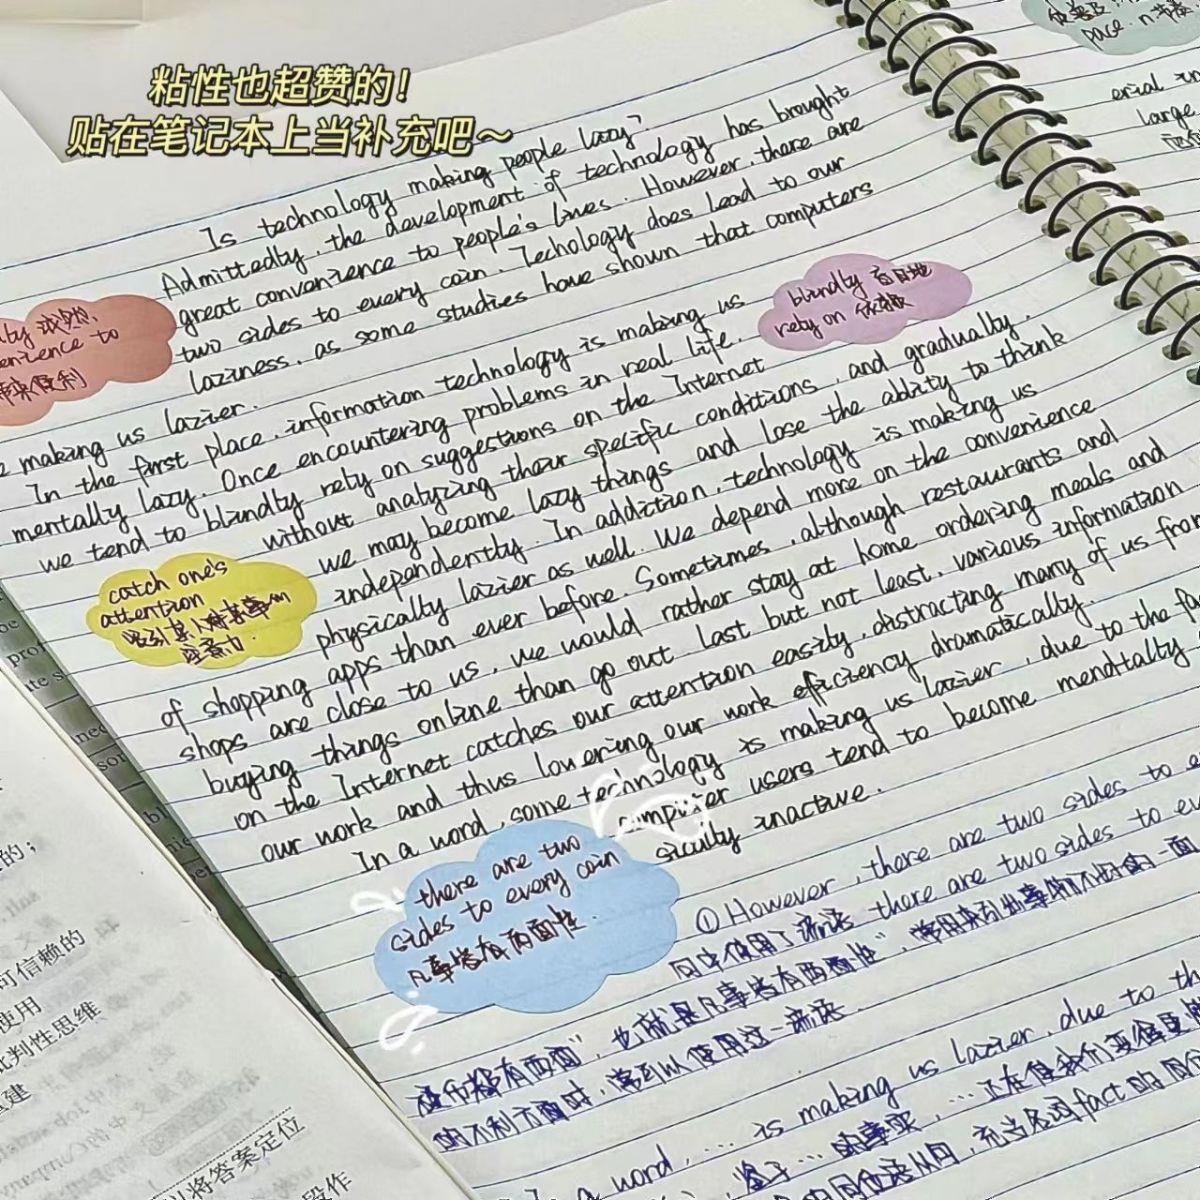 粘性也超赞的！
贴在笔记本上当补充吧～
pace. n.
Is technology making people lazy?
Admittedly, the development of technology has brought
great convenience to people's lives. However, there are
two sides to every coin. Techology does lead to our
laziness, as some studies have shown that computers
making us lazier.
In the first place, information technology is making us
mentally lazy. Once encountering problems in real life,
we tend to blindly rely on suggestions on the Internet
without analyzing their specific conditions, and gradually,
we may become lazy things and lose the ability to think
independently. In addiction, technology is making us
physically lazier as well. We depend more on the convenience
of shopping apps than ever before. Sometimes, although restaurants and
shops are close to us, we would rather stay at home ordering meals and
buying things online than go out. last but not least, various information
on the Internet catches our attention easily, distracting many of us from
our work and thus lowering our work efficiency dramatically.
In a word, some technology is making us lazier, due to the
computer users tend to become mendtally
sically inactive.
blindly 盲目地
rely on 依赖
带来便利
catch one's
attention
吸引某人对某事的
注意力.
there are two
sides to every coin
凡事皆有两面性.
①However, there are two sides to
句中使用了谚语 there are two sides to
硬币都有两面”, 也就是凡事皆有两面性”, 常用来引出事物不好的一面
的不利方面时, 常可以使用这一谚语.
a word, ... is making us lazier, due to
的;
可信赖的
使用
批判性思维
建
将答案定位